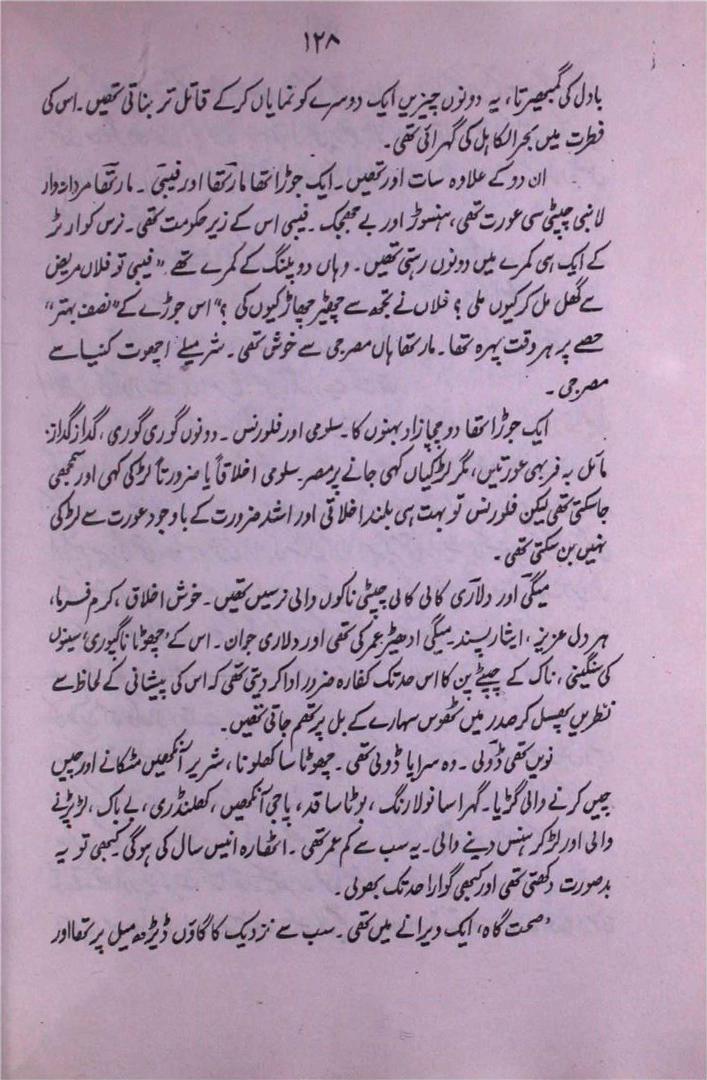 ۱۲۸
بادل کی گمبھیرتا، یہ دونوں چیزیں ایک دوسرے کو نمایاں کر کے قاتل تر بناتی تھیں۔ اس کی
فطرت میں بحر الکاہل کی گہرائی تھی۔
ان دو کے علاوہ سات اور تھیں۔ ایک جوڑا تھا مارتھا اور فیبی۔ مارتھا مردانہ وار
لانبی چپٹی سی عورت تھی، ہنسوڑ اور بے جھجک۔ فیبی اس کے زیر حکومت تھی۔ نرس کوارٹر
کے ایک ہی کمرے میں دونوں رہتی تھیں۔ وہاں دو پلنگ کے کمرے تھے ”فیبی تو فلاں مریض
سے گھل مل کر کیوں ملی؟ فلاں نے تجھ سے چھیڑ چھاڑ کیوں کی؟“ اس جوڑے کے ”نصف بہتر“
حصے پر ہر وقت پہرہ تھا۔ مارتھا ہاں مصرجی سے خوش تھی۔ شرمیلے اچھوت کنیا سے
مصرجی۔
ایک جوڑا تھا دو چچا زاد بہنوں کا۔ سلومی اور فلورنس۔ دونوں گوری گوری، گداز گداز،
مائل بہ فربہی عورتیں، مگر لڑکیاں کہی جانے پر مصر۔ سلومی اخلاقاً یا ضرورتاً لڑکی کہی اور سمجھی
جا سکتی تھی لیکن فلورنس تو بہت ہی بلند اخلاقی اور اشد ضرورت کے باوجود عورت سے لڑکی
نہیں بن سکتی تھی۔
میگی اور دلاری کالی کالی چپٹی ناکوں والی نرسیں تھیں۔ خوش اخلاق، کرم فرما،
ہر دل عزیز، ایثار پسند۔ میگی ادھیڑ عمر کی تھی اور دلاری جوان۔ اس کے ’چھوٹا ناگپوری‘ سینوں
کی سنگینی، ناک کے چپٹے پن کا اس حد تک کفارہ ضرور ادا کر دیتی تھی کہ اس کی پیشانی کے لحاظ سے
نظریں پھسل کر صدر میں ٹھوس سہارے کے بل پر تھم جاتی تھیں۔
نویں تھی ڈولی۔ وہ سراپا ڈولی تھی۔ چھوٹا سا کھلونا، شریر آنکھیں مٹکانے اور چیں
چیں کرنے والی گڑیا۔ گہرا سانولا رنگ، بوٹا سا قد، پاجی آنکھیں، کھلنڈری، بے باک، لڑ پڑنے
والی اور لڑ کر ہنس دینے والی۔ یہ سب سے کم عمر تھی۔ اٹھارہ انیس سال کی ہوگی کبھی تو یہ
بدصورت دکھتی تھی اور کبھی گوارا حد تک بھولی۔
’صحت گاہ‘ ایک ویرانے میں تھی۔ سب سے نزدیک کا گاؤں ڈیڑھ میل پر تھا اور